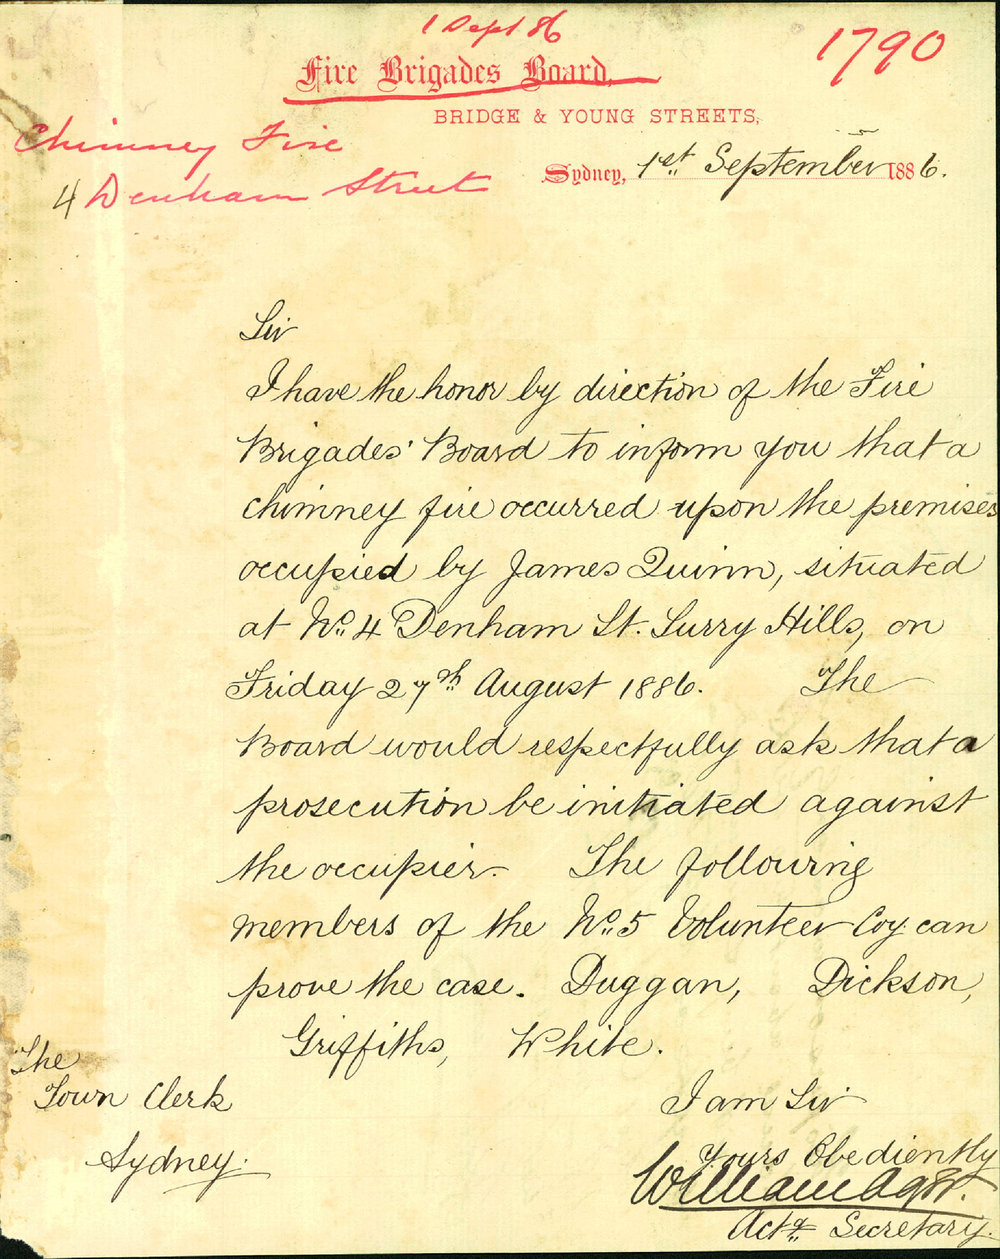 1 Sept 86
1790
Fire Brigades Board,
BRIDGE & YOUNG STREETS,
Chimney Fire
4 Denham Street
Sydney, 1st September 1886.
Sir
I have the honor by direction of the Fire
Brigades' Board to inform you that a
chimney fire occurred upon the premises
occupied by James Quinn, situated
at No. 4 Denham St. Surry Hills, on
Friday 27th August 1886. The
Board would respectfully ask that a
prosecution be initiated against
the occupier. The following
members of the No. 5 Volunteer Coy. can
prove the case. Duggan, Dickson,
Griffiths, White.
The
Town Clerk
Sydney.
I am Sir
Yours Obediently
William
Actg. Secretary.